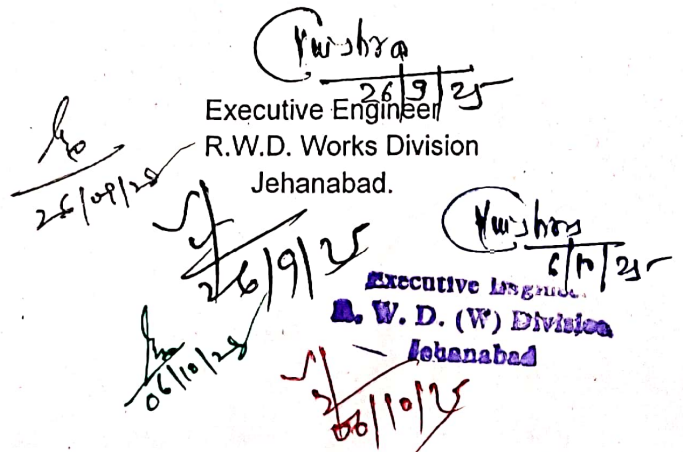 26/9/25
Executive Engineer
R.W.D. Works Division
Jehanabad.
26/09/25
26/9/25
6/10/25
Executive Engineer
R. W. D. (W) Division
Jehanabad
06/10/25
06/10/25